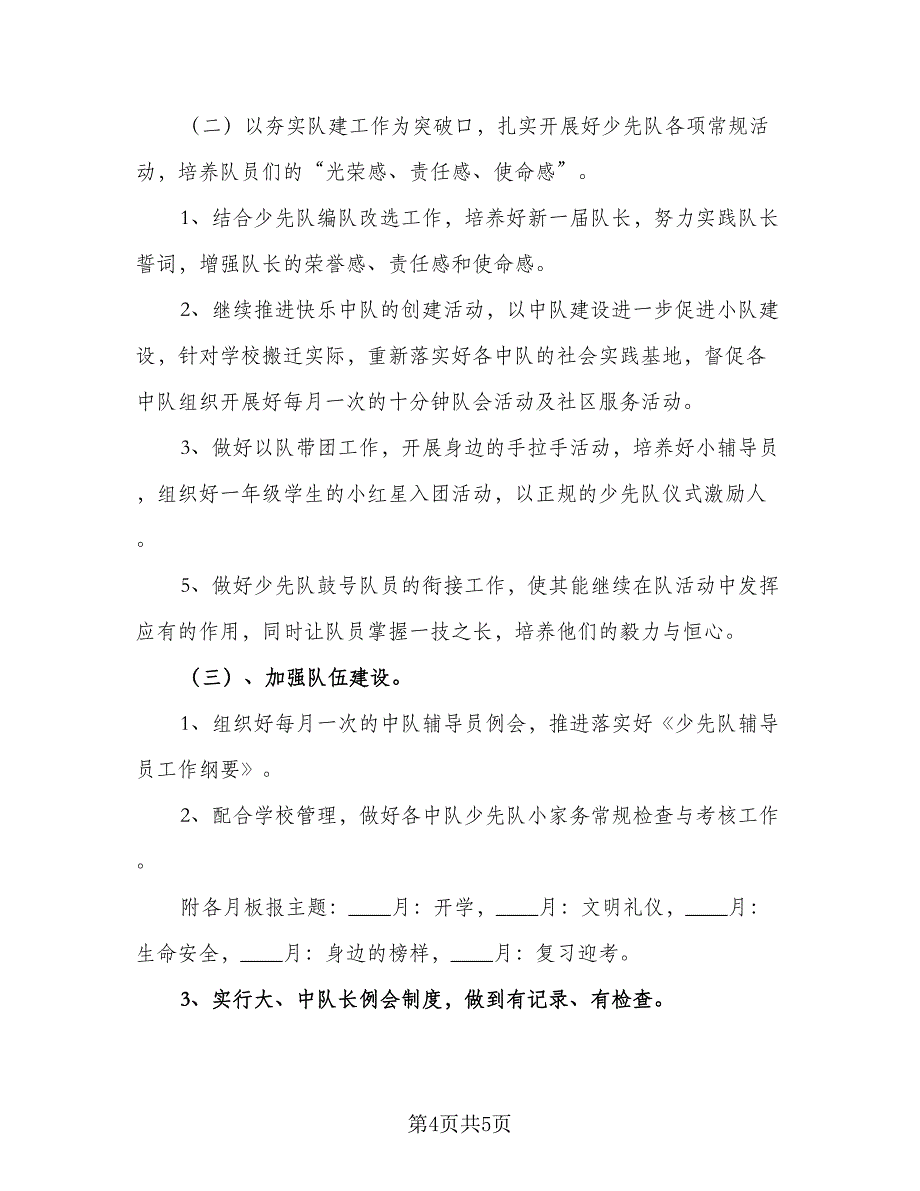 （二）以夯实队建工作为突破口，扎实开展好少先队各项常规活
动，培养队员们的“光荣感、责任感、使命感”。
1、结合少先队编队改选工作，培养好新一届队长，努力实践队长
誓词，增强队长的荣誉感、责任感和使命感。
2、继续推进快乐中队的创建活动，以中队建设进一步促进小队建
设，针对学校搬迁实际，重新落实好各中队的社会实践基地，督促各
中队组织开展好每月一次的十分钟队会活动及社区服务活动。
3、做好以队带团工作，开展身边的手拉手活动，培养好小辅导员
，组织好一年级学生的小红星入团活动，以正规的少先队仪式激励人
。
5、做好少先队鼓号队员的衔接工作，使其能继续在队活动中发挥
应有的作用，同时让队员掌握一技之长，培养他们的毅力与恒心。
（三）、加强队伍建设。
1、组织好每月一次的中队辅导员例会，推进落实好《少先队辅导
员工作纲要》。
2、配合学校管理，做好各中队少先队小家务常规检查与考核工作
。
附各月板报主题：____月：开学，____月：文明礼仪，____月：
生命安全，____月：身边的榜样，____月：复习迎考。
3、实行大、中队长例会制度，做到有记录、有检查。
第4页共5页